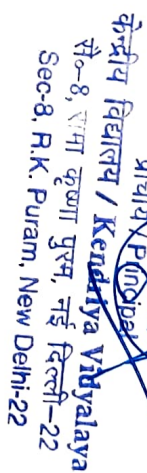 प्राचार्य/Principal
केन्द्रीय विद्यालय / Kendriya Vidyalaya
से०-8, रामा कृष्णा पुरम, नई दिल्ली-22
Sec-8, R.K. Puram, New Delhi-22